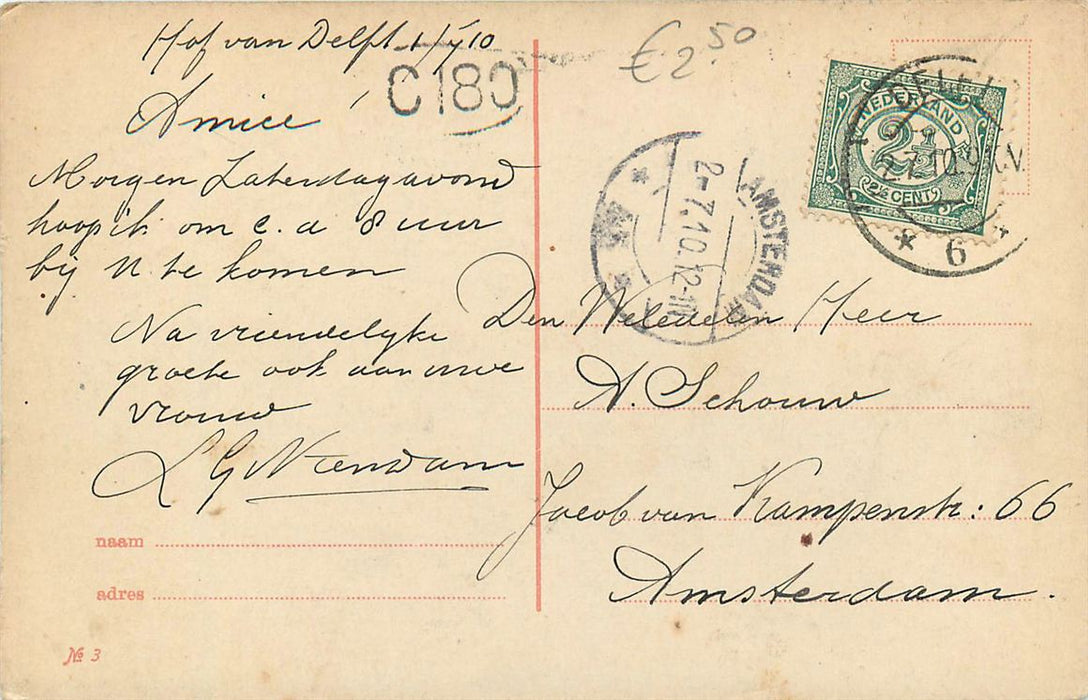 Hof van Delft 1/7 10
C180
€ 2.50
Amice
Morgen Zaterdagavond
hoop ik om c. a 8 uur
bij U te komen
Na vriendelijke
groete ook aan uwe
vrouw
L G Veendam
naam
adres
№ 3
NEDERLAND
2½
2½ CENT
DELFT
1.7.10.9-10V.
6
AMSTERDAM
2-7.10.12-1N
Den Weledelen Heer
A. Schouw
Jacob van Kampenstr: 66
Amsterdam.